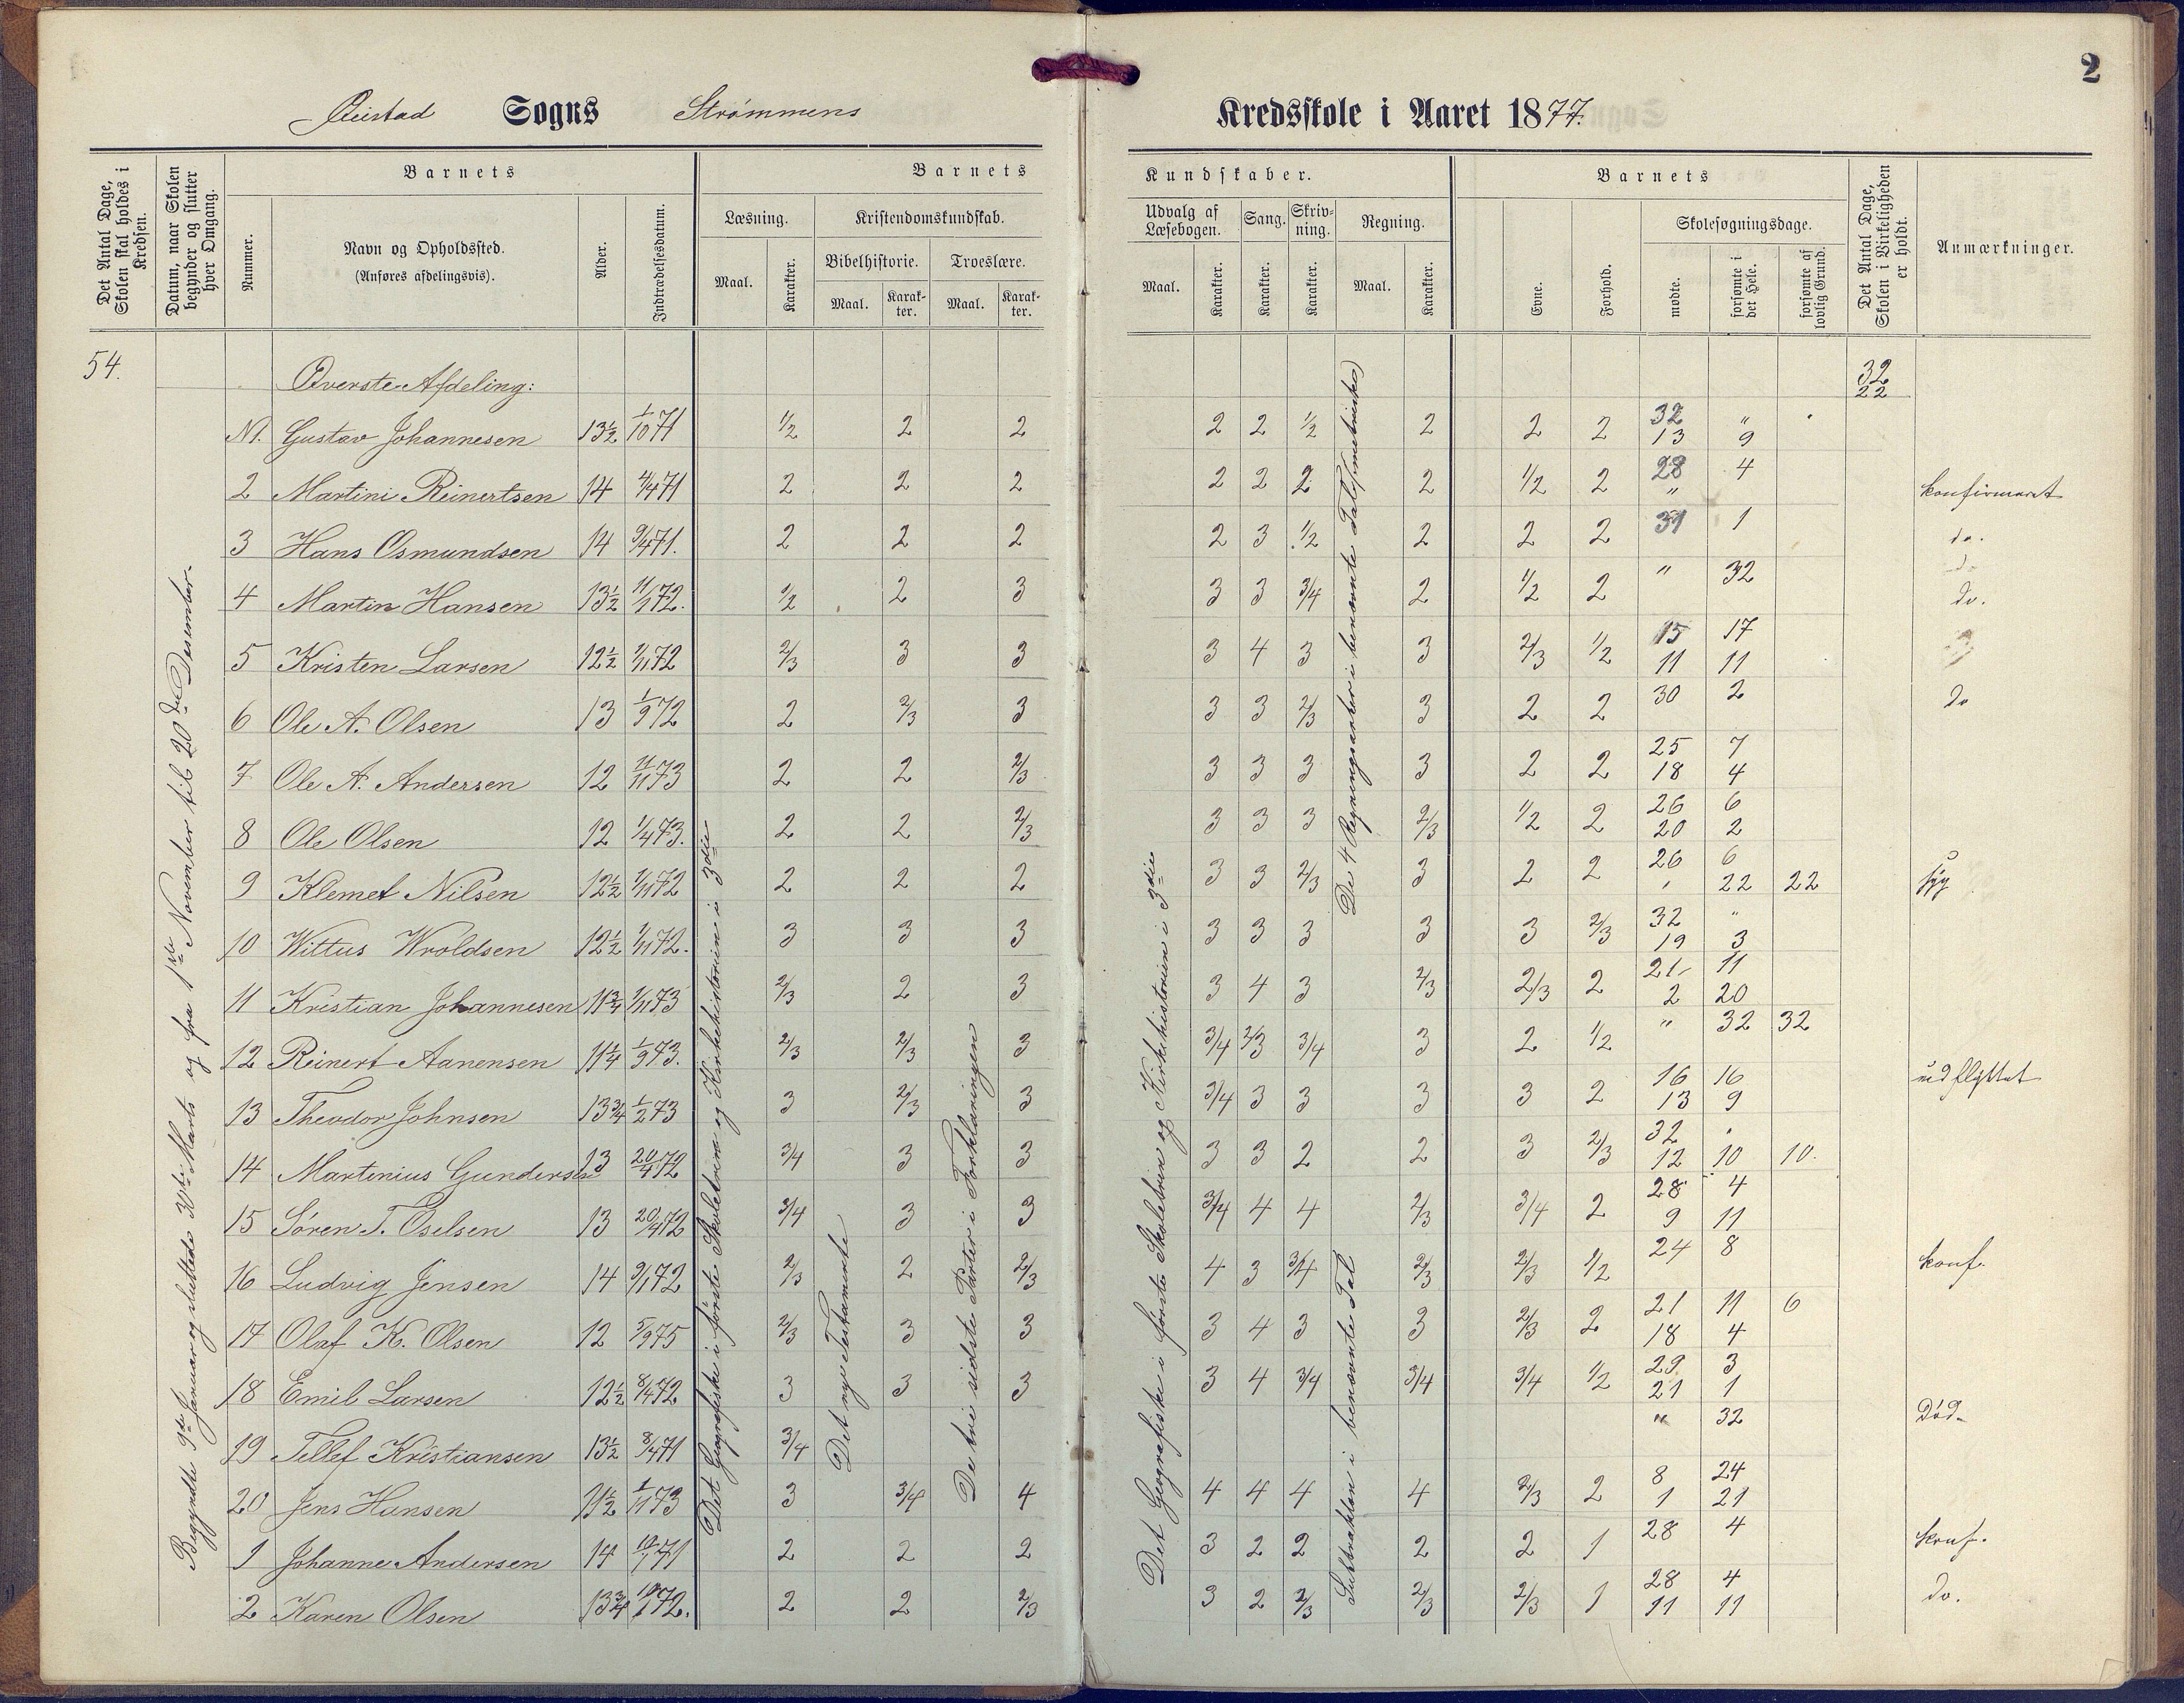 2
Øiestad Sogns Strømmens Kredsskole i Aaret 1877.
Det Antal Dage, Skolen skal holdes i Kredsen.
Datum, naar Skolen begynder og slutter hver Omgang.
Barnets
Nummer.
Navn og Opholdssted.
(Anføres afdelingsvis).
Alder.
Indtrædelsesdatum.
Barnets Kundskaber.
Læsning.
Maal.
Karakter.
Kristendomskundskab.
Bibelhistorie.
Maal.
Karakter.
Troeslære.
Maal.
Karakter.
Udvalg af Læsebogen.
Maal.
Karakter.
Sang.
Karakter.
Skrivning.
Karakter.
Regning.
Maal.
Karakter.
Barnets
Evne.
Forhold.
Skolesøgningsdage.
mødte.
forsømte i det Hele.
forsømte af lovlig Grund.
Det Antal Dage, Skolen i Virkeligheden er holdt.
Anmærkninger.
54. Øverste Afdeling: 32 22
N1. Gustav Johannesen 13½ 1/10 71 1/2 2 2 2 2 1/2 2 2 2 32 " 13 9
2 Martini Reinertsen 14 4/4 71 2 2 2 2 2 2 2 1/2 2 28 4 " konfirmeret
3 Hans Osmundsen 14 9/4 71. 2 2 2 2 3 1/2 2 2 2 31 1 do.
4 Martin Hansen 13½ 11/1 72. 1/2 2 3 3 3 3/4 2 1/2 2 " 32 do.
5 Kristen Larsen 12½ 1/11 72 2/3 3 3 3 4 3 3 2/3 1/2 15 17 11 11
6 Ole A. Olsen 13 1/9 72 2 2/3 3 3 3 2/3 3 2 2 30 2 do
7 Ole A. Andersen 12 11/11 73 2 2 2/3 3 3 3 3 2 2 25 7 18 4
8 Ole Olsen 12 1/4 73. 2 2 2/3 3 3 3 2/3 1/2 2 26 6 20 2
9 Klemet Nilsen 12½ 1/11 72 2 2 2 3 3 2/3 3 2 2 26 6 " 22 22 syg
10 Wittus Wroldsen 12½ 1/11 72. 3 3 3 3 3 3 3 3 2/3 32 " 19 3
11 Kristian Johannesen 11¾ 1/11 73 2/3 2 3 3 4 3 2/3 2/3 2 21 11 2 20
12 Reinert Aanensen 11¼ 1/9 73. 2/3 2/3 3 3/4 2/3 3/4 3 2 1/2 " 32 32
13 Theodor Johnsen 13¾ 1/2 73 3 2/3 3 3/4 3 3 3 3 2 16 16 13 9 udflyttet
14 Martinius Gundersen 13 20/4 72 3/4 3 3 3 3 2 2 3 2/3 32 " 12 10 10.
15 Søren T. Oselsen 13 20/4 72 3/4 3 3 3/4 4 4 2/3 3/4 2 28 4 9 11
16 Ludvig Jensen 14 9/1 72 2/3 2 2/3 4 3 3/4 2/3 2/3 1/2 24 8 konf.
17 Olaf K. Olsen 12 5/9 75 2/3 3 3 3 4 3 3 2/3 2 21 11 6 18 4
18 Emil Larsen 12½ 8/4 72 3 3 3 3 4 3/4 3/4 3/4 1/2 29 3 21 1
19 Tellef Kristiansen 13½ 8/4 71 3/4 " 32 Død.
20 Jens Hansen 11½ 1/11 73 3 3/4 4 4 4 4 4 2/3 2 8 24 1 21
1 Johanne Andersen 14 71 2 2 2 3 2 2 2 2 1 28 4 konf.
2 Karen Olsen 13¾ 72. 2 2 2/3 3 2 2/3 2/3 2/3 1 28 4 11 11 do.
Begyndte 9de Januar og sluttede Marts og fra 1ste November til 20de Desember.
Det Geografiske i første Skoletrin og Kirkehistorien i 3die
Det nye Testamente
De tri sidste Parter i Forklaringen
Det Geografiske i første Skoletrin og Kirkehistorien i 3die
De 4 Regningsarter i benævnte Tal (metriske)
Subtraktion i benævnte Tal